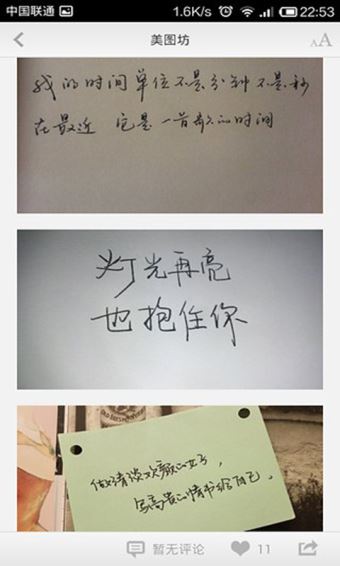 中国联通
1.6K/s 22:53
美图坊
AA
我的时间单位不是分钟不是秒
在最近 它是一首歌的时间
灯光再亮
也抱住你
做清淡欢颜的女子,
写高贵的情书给自己。
暂无评论 11